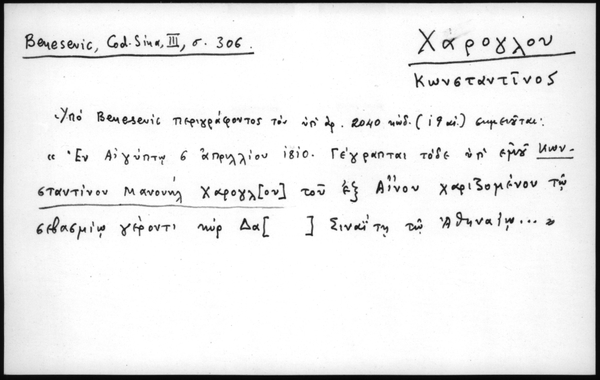 Benesevic, Cod. Sina, III, σ. 306.
Χάρογλου
Κωνσταντῖνος
Ὑπό Benesevic περιγράφοντος τόν ὑπ' ἀρ. 2040 κώδ. (19 αἰ.) σημειοῦται:
« Ἐν Αἰγύπτῳ 5 ἀπριλλίου 1810. Γέγραπται τόδε ὑπ' ἐμοῦ Κων-
σταντίνου Μανουήλ Χαρογλ[ου] τοῦ ἐξ Αἴνου χαριζομένου τῷ
σεβασμίῳ γέροντι κύρ Δα[ ] Σιναΐτῃ τῷ Ἀθηναίῳ... »